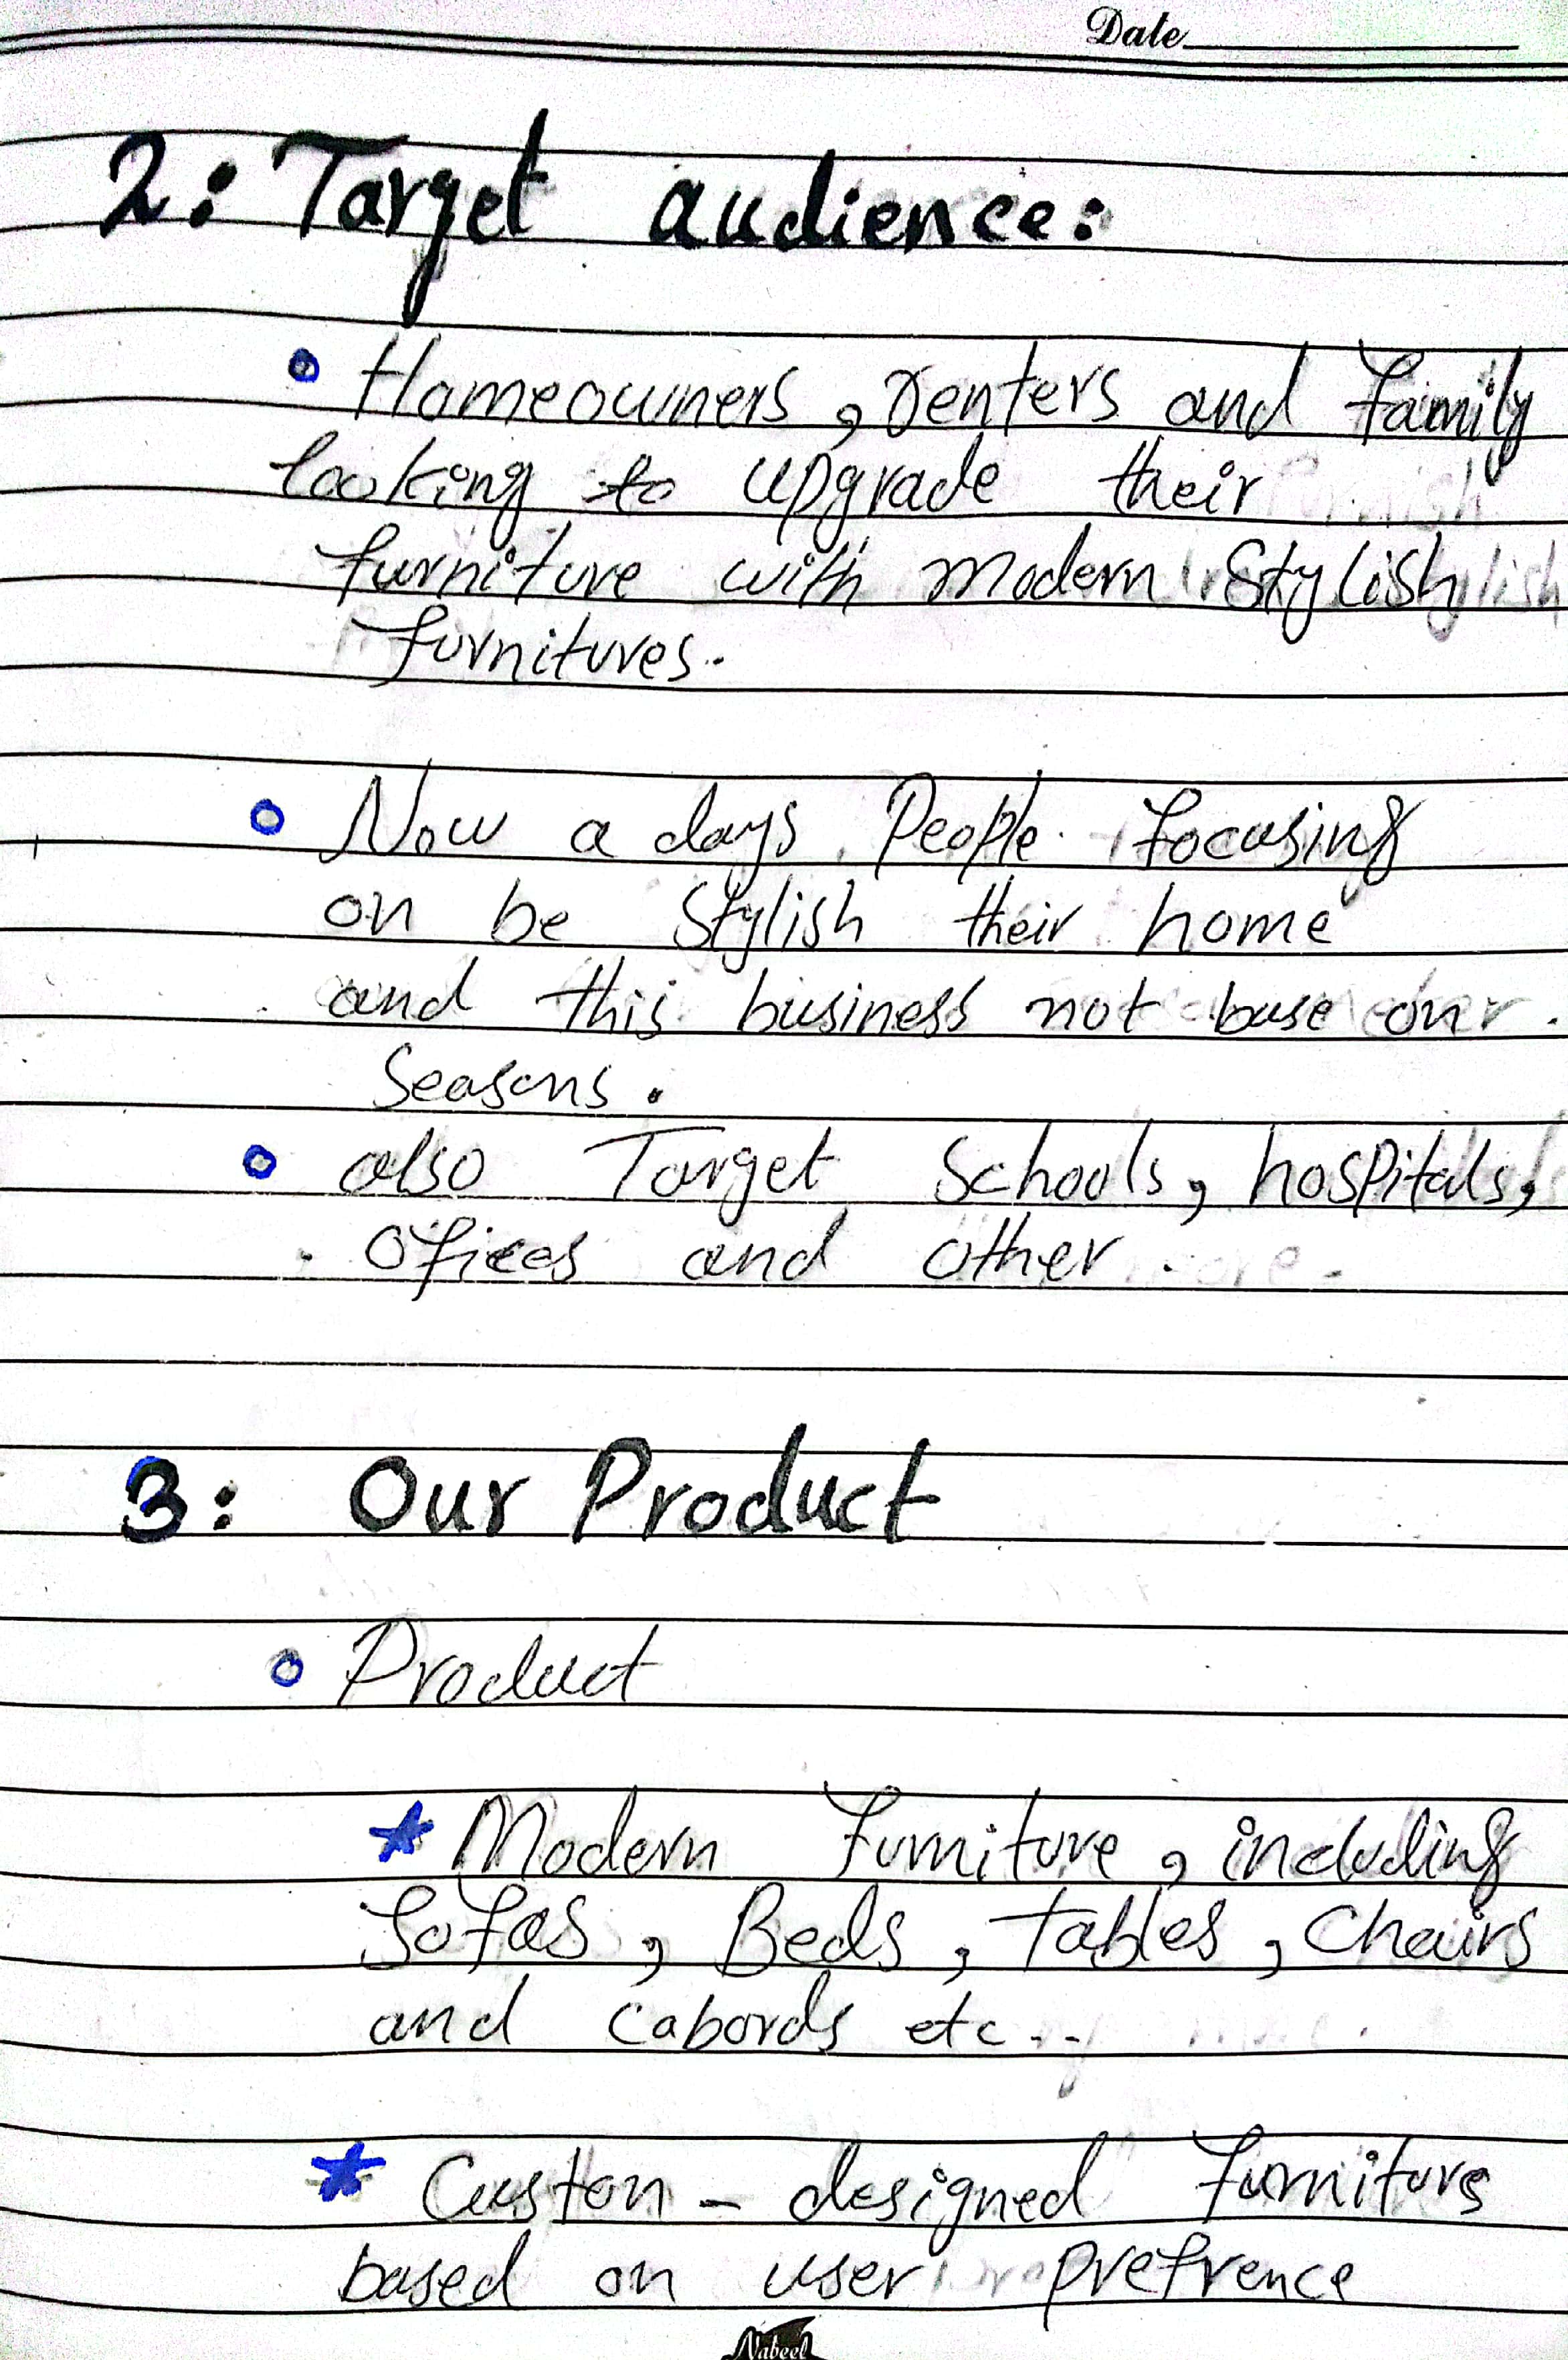 Date
2: Target audience:
• Homeowners, renters and family
looking to upgrade their
furniture with modern Stylish
furnitures.
• Now a days People focusing
on be Stylish their home
and this business not base on
Seasons.
• also Target Schools, hospitals,
Ofices and other.
3: Our Product
• Product
* Modern furniture, including
Sofas, Beds, tables, Chairs
and cabords etc..
* Custon - designed furniture
based on user prefrence
Nabeel